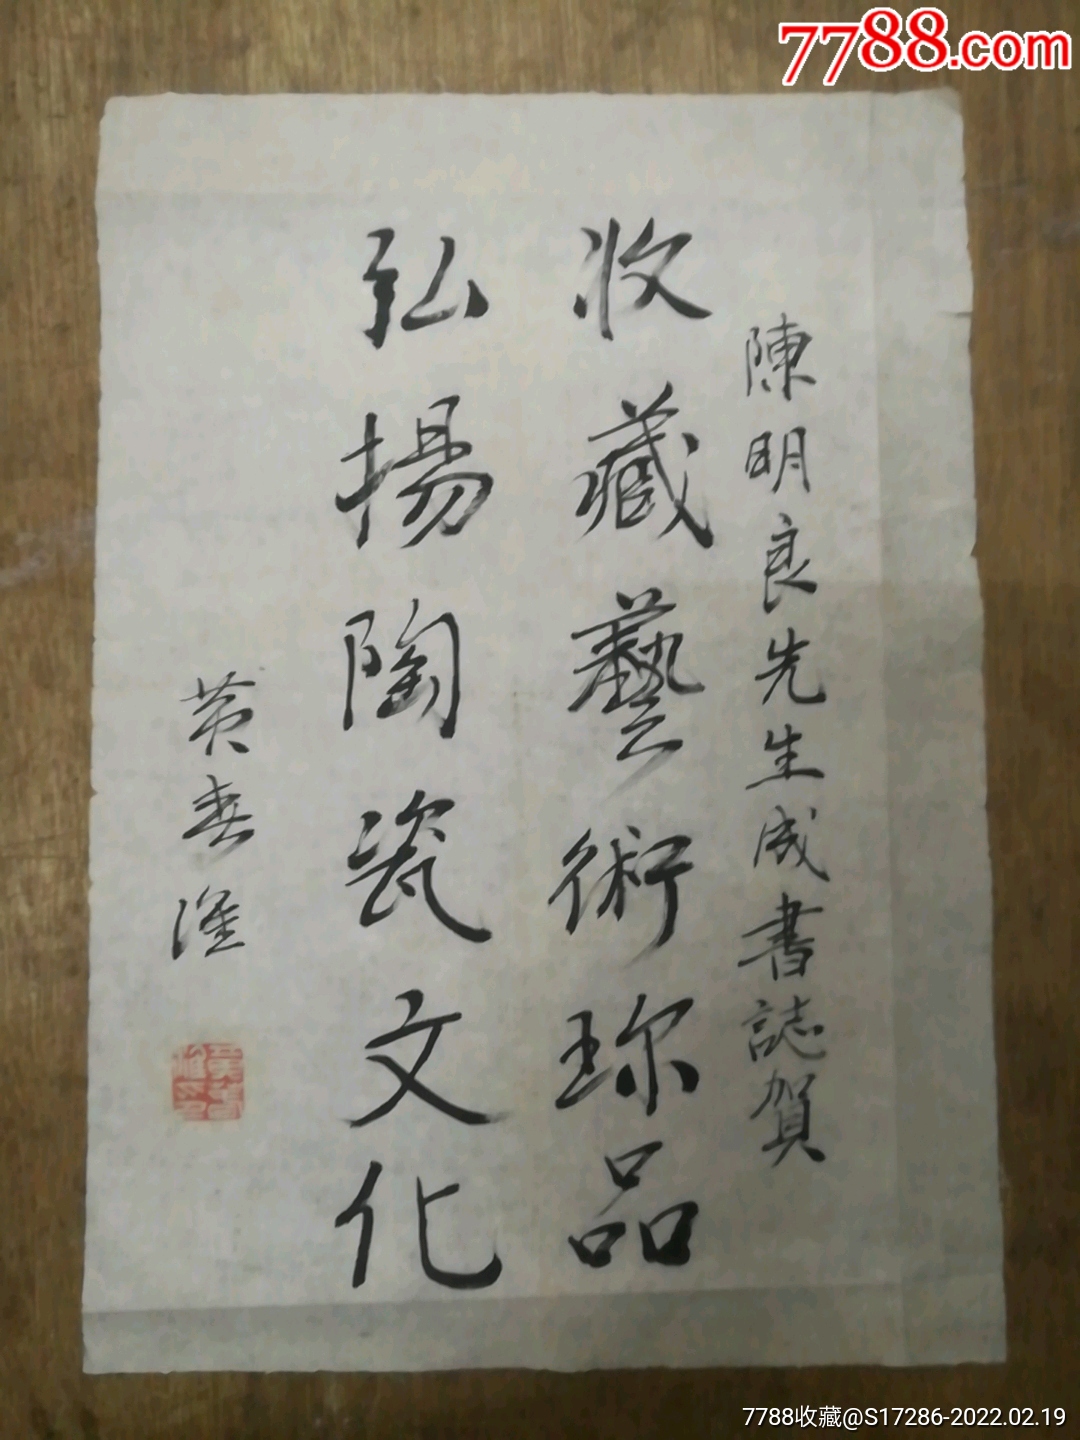 7788.com
陳明良先生成書誌賀
收藏藝術珎品
弘揚陶瓷文化
黄春淮
7788收藏@S17286-2022.02.19